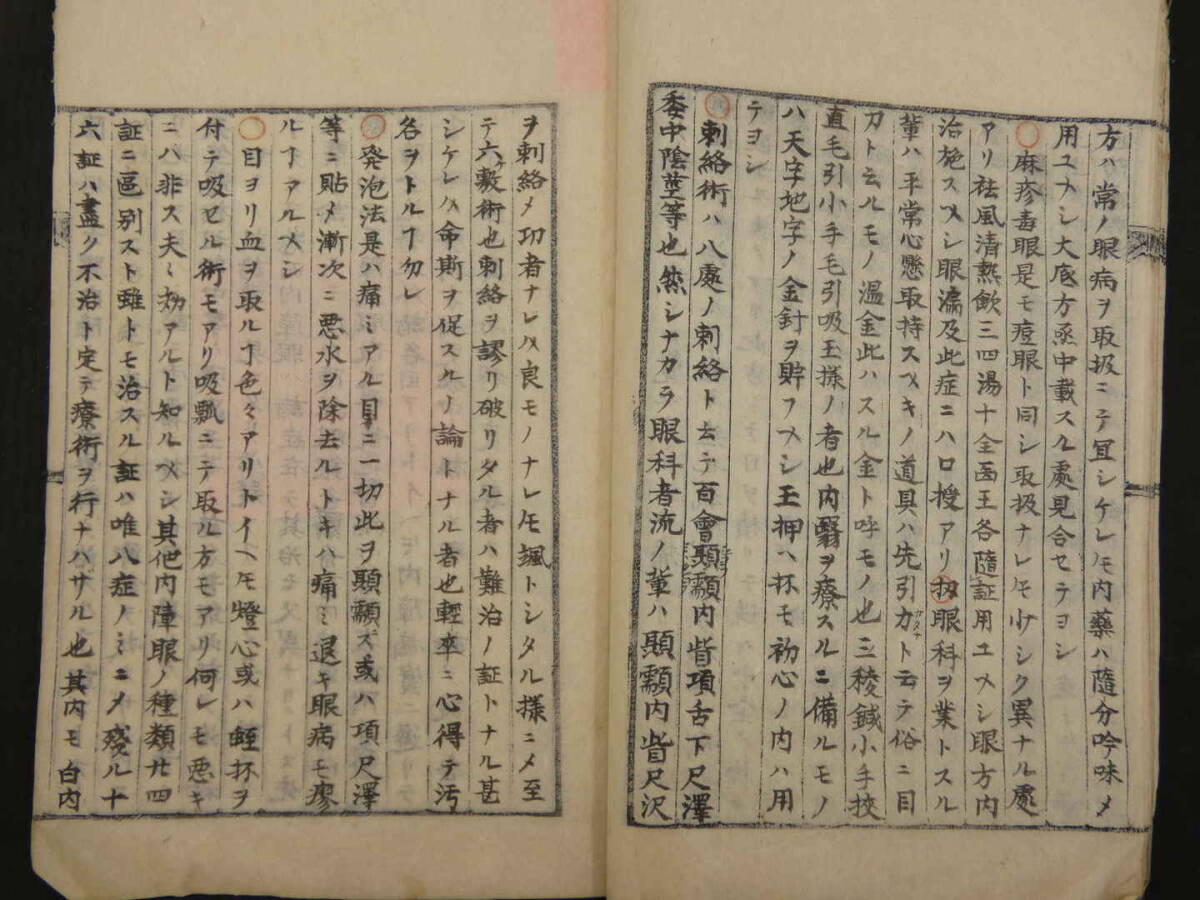 方ハ常ノ眼病ヲ取扱ニテ冝シケレ𪜈内藥ハ隨分吟味〆
用ユヘシ大底方函中載スル處見合セテヨシ
○麻疹毒眼是モ痘眼ト同シ取扱ナレ𪜈少シク異ナル處
アリ祛風清熱飲三四湯十全歯王各隨証用ユヘシ眼方内
治施スヘシ眼瀉及此症ニハ口授アリ扨眼科ヲ業トスル
輩ハ平常心懸取持スヘキノ道具ハ先引力ト云テ俗ニ目
カト云ルモノ温金此ハスル金ト呼モノ也三稜鍼小手挍
直毛引小手毛引吸玉様ノ者也内翳ヲ療スルニ備ルモノ
ハ天字地字ノ金針ヲ貯フヘシ玉押ハ抔モ初心ノ内ハ用
テヨシ
○刺絡術ハ八處ノ刺絡ト云テ百會顖顬内眥項舌下尺澤
委中陰莖等也然シナカラ眼科者流ノ輩ハ顖顬内眥尺沢
ヲ刺絡〆功者ナレハ良モノナレ𪜈颯トシタル様ニ〆至
テ六ケ敷術也刺絡ヲ謬リ破リタル者ハ難治ノ証トナル甚
シケレハ命斯ヲ促スルノ論トナル者也輕卒ニ心得テ汚
各ヲトルヿ勿レ
○発泡法是ハ痛ミアル目ニ一切此ヲ顖顬ズ或ハ項尺澤
等ニ貼〆漸次ニ悪水ヲ除去ルトキハ痛ミ退キ眼病モ癒
ルヿアルヘシ
○目ヨリ血ヲ取ルヿ色々アリトイヘ𪜈燈心或ハ蛭抔ヲ
付テ吸セル術モアリ吸瓢ニテ取ル方モアリ何レモ悪キ
ニハ非ス夫々効アルト知ルヘシ其他内障眼ノ種類廿四
証ニ區别スト雖トモ治スル証ハ唯八症ノミニ〆殘ル十
六証ハ盡ク不治ト定テ療術ヲ行ナハサル也其内モ白内